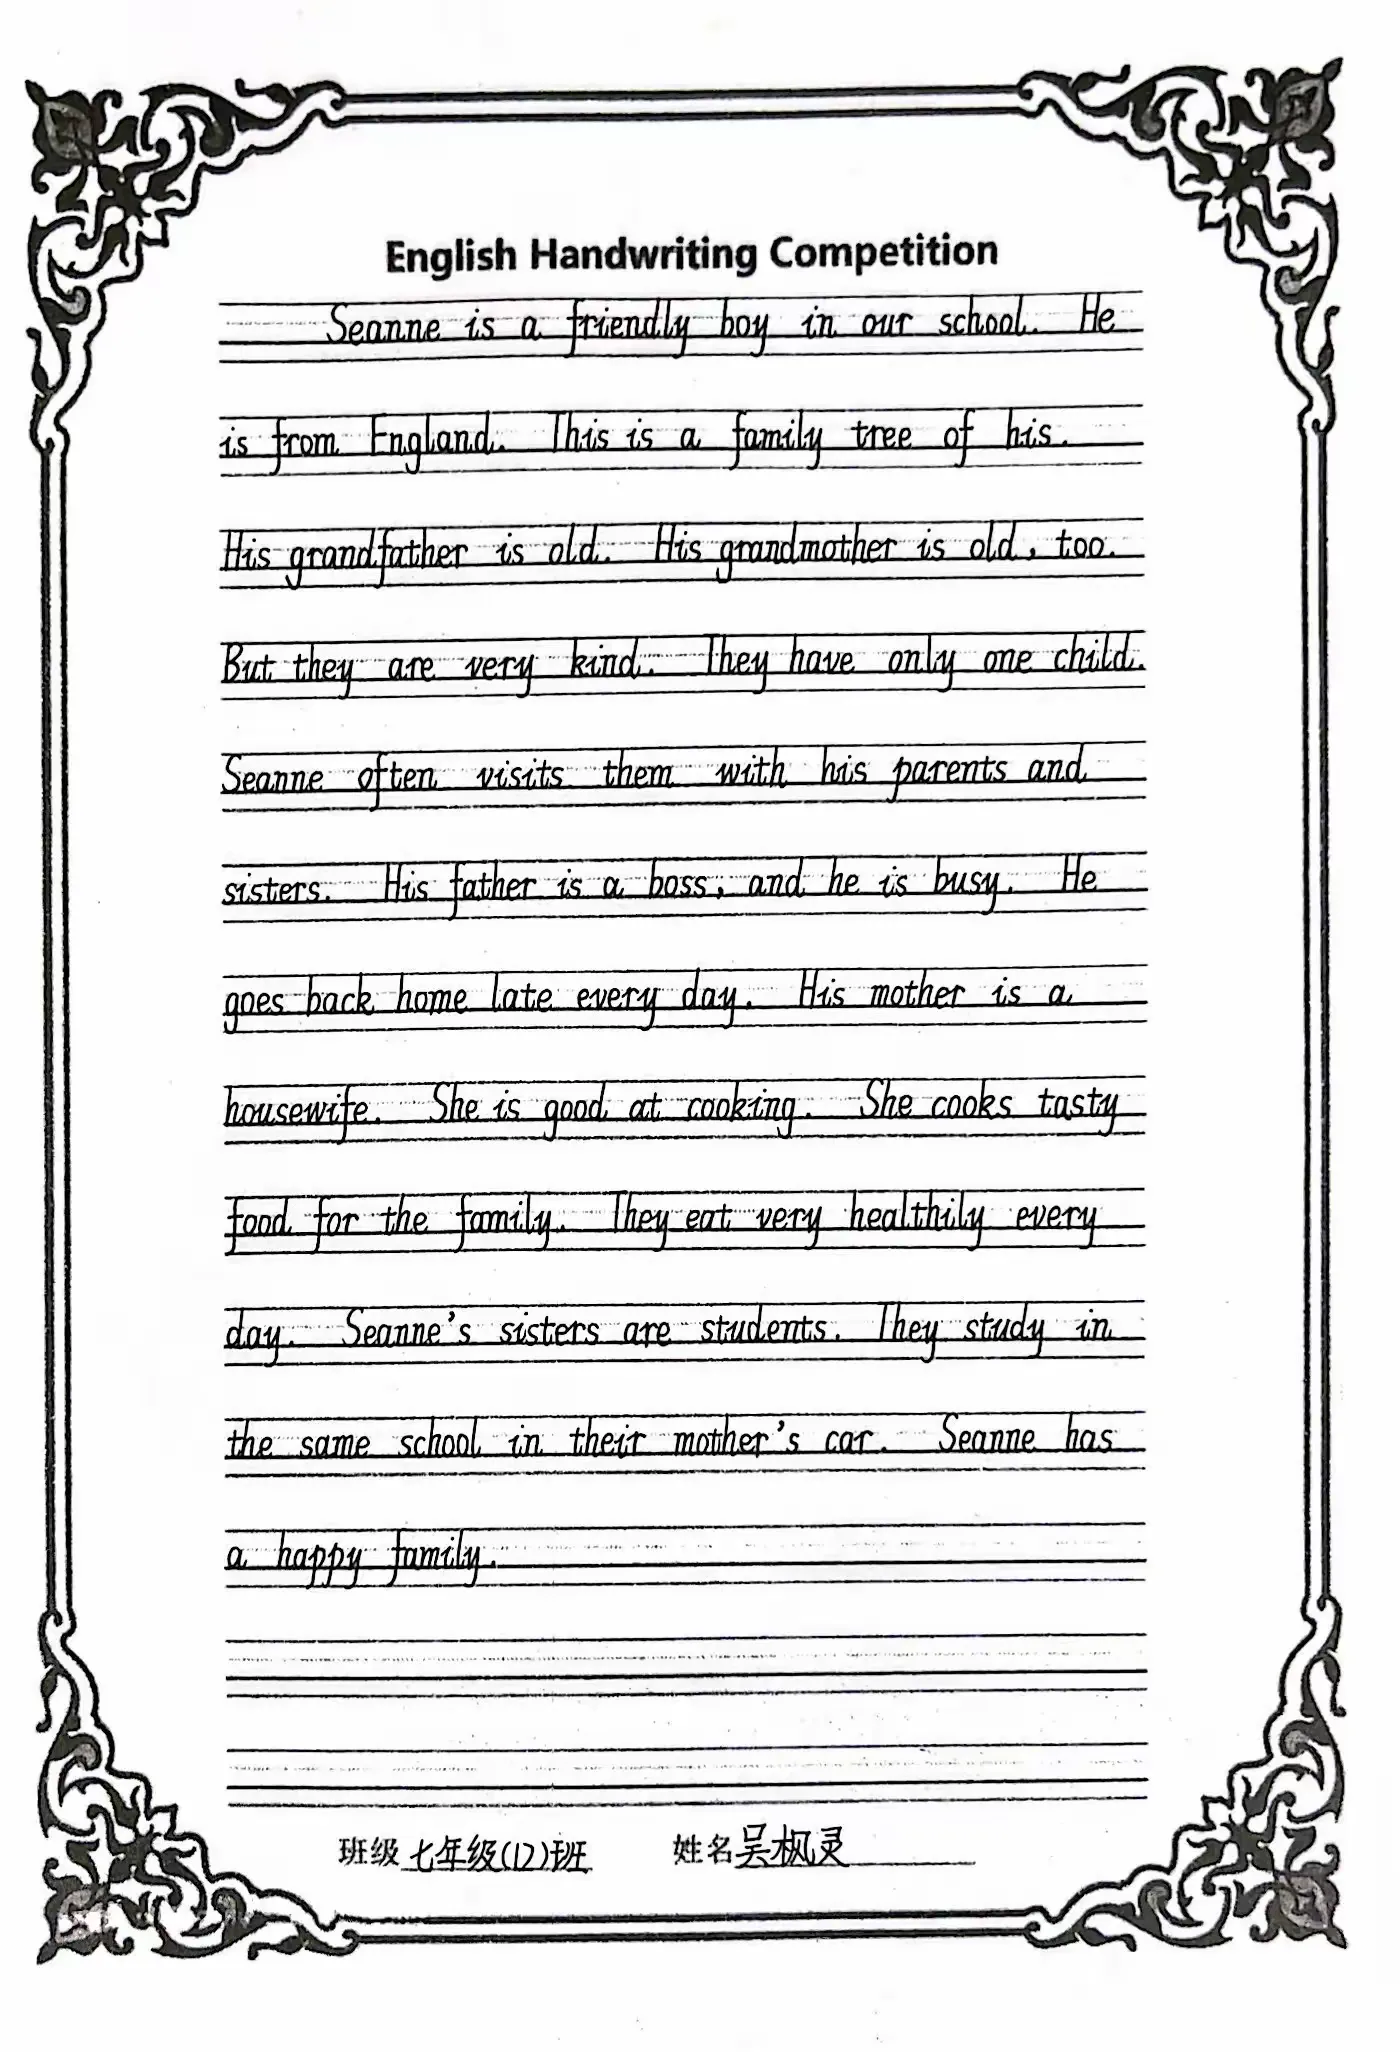 English Handwriting Competition
Seanne is a friendly boy in our school. He
is from England. This is a family tree of his.
His grandfather is old. His grandmother is old, too.
But they are very kind. They have only one child.
Seanne often visits them with his parents and
sisters. His father is a boss, and he is busy. He
goes back home late every day. His mother is a
housewife. She is good at cooking. She cooks tasty
food for the family. They eat very healthily every
day. Seanne's sisters are students. They study in
the same school in their mother's car. Seanne has
a happy family.
班级 七年级(12)班 姓名 吴枫灵